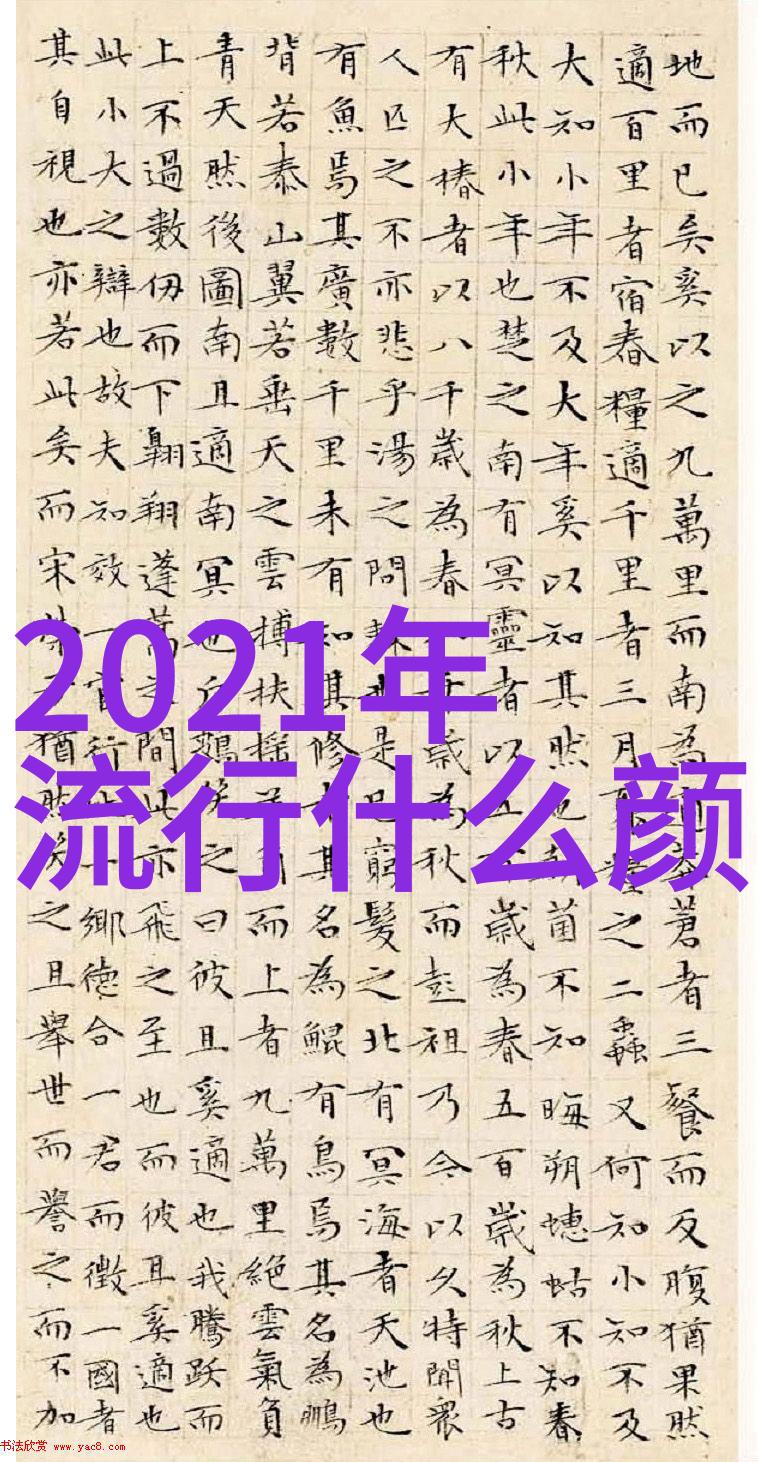 地而已矣奚以之九萬里而南為蒼者三餐而反腹猶果然
適百里者宿舂糧適千里者三月糧之二蟲又何知小知不及
大知小年不及大年奚以知其然也菌不知晦朔蟪蛄不知春
秋此小年也楚之南有冥靈者以五歲為春五百歲為秋上古
有大椿者以八千歲為春千歲為秋而彭祖乃今以久特聞眾
人匹之不亦悲乎湯之問棘是已窮髮之北有冥海者天池也
有魚焉其廣數千里未有知其修其名為鯤有鳥焉其名為鵬
背若泰山翼若垂天之雲摶扶搖而上者九萬里絕雲氣負
青天然後圖南且適南冥也斥鷃之曰彼且奚適也我騰躍而
上不過數仞而下翱翔蓬蒿之間此亦飛之至也而彼且奚適也
此小大之辯也故夫知效一官行一鄉德合一君而徵一國者
其自視也亦若此矣而宋猶然笑之且舉世而譽之而不加
2021年
流行什么颜
书法欣赏 www.yac8.com